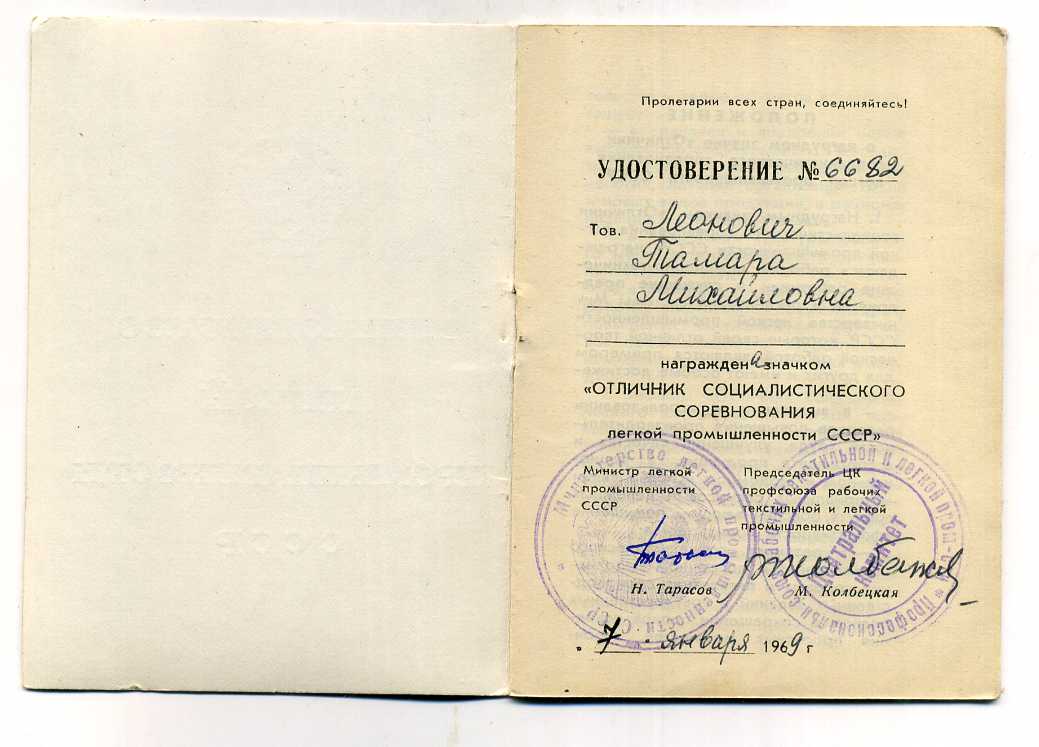 Пролетарии всех стран, соединяйтесь!
УДОСТОВЕРЕНИЕ № 6682
Тов. Леонович
Тамара
Михайловна
награждена значком
«ОТЛИЧНИК СОЦИАЛИСТИЧЕСКОГО
СОРЕВНОВАНИЯ
легкой промышленности СССР»
Министр легкой
промышленности
СССР
Н. Тарасов
Председатель ЦК
профсоюза рабочих
текстильной и легкой
промышленности
М. Колбецкая
Министерство легкой промышленности СССР
Центральный
комитет
„ 7 “ января 1969 г